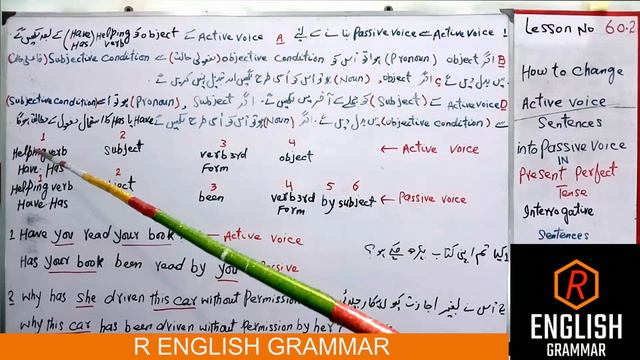 1 Active voice سے Passive voice بنانے کے لیے A Active voice کے object کو Helping verb (Have Has) کے بعد لکھیں گے
B اگر object (Pronoun) ہو تو اس کو objective condition (مفعولی حالت) سے Subjective condition (فاعلی حالت)
میں بدل دیں گے C اگر object (Noun) ہو تو اس کو اسی طرح لکھیں گے اور تبدیل نہیں کریں گے
D Active voice کے (Subject) کو جملے کے آخر میں لکھیں گے۔ اگر Subject (Pronoun) ہو تو اسے (Subjective condition)
سے (objective condition) میں بدل دیں گے۔ اگر (Noun) ہو تو اس کو اسی طرح لکھیں گے Have یا Has کا استعمال مفعول کے مطابق ہوگا
1 2 3 4
Helping verb subject verb 3rd object ← Active voice
Have Has Form
1 2 3 4 5 6
Helping verb been verb 3rd by subject ← Passive voice
Have Has Form
1 Have you read your book ← Active voice
Has your book been read by you 1 کیا تم اپنی کتاب پڑھ چکے ہو؟
2 why has she driven this car without Permission
why this car has been driven without permission by her
Lesson No 60.2
How to change
Active voice
Sentences
into Passive voice
IN
Present Perfect
Tense
Interrogative
Sentences
R
ENGLISH
GRAMMAR
R ENGLISH GRAMMAR